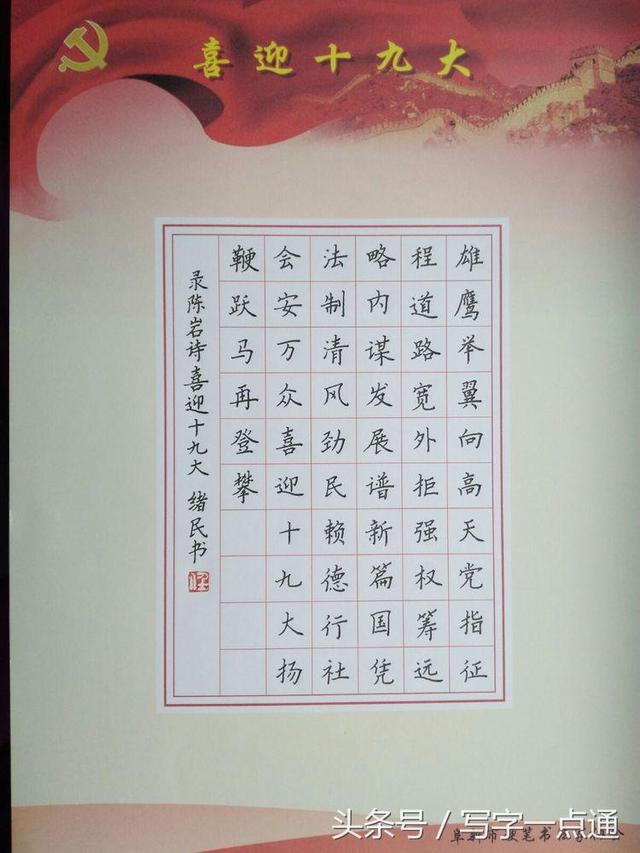 喜迎十九大
雄鹰举翼向高天党指征
程道路宽外拒强权筹远
略内谋发展谱新篇国凭
法制清风劲民赖德行社
会安万众喜迎十九大扬
鞭跃马再登攀
录陈岩诗喜迎十九大 绪民书
头条号/写字一点通